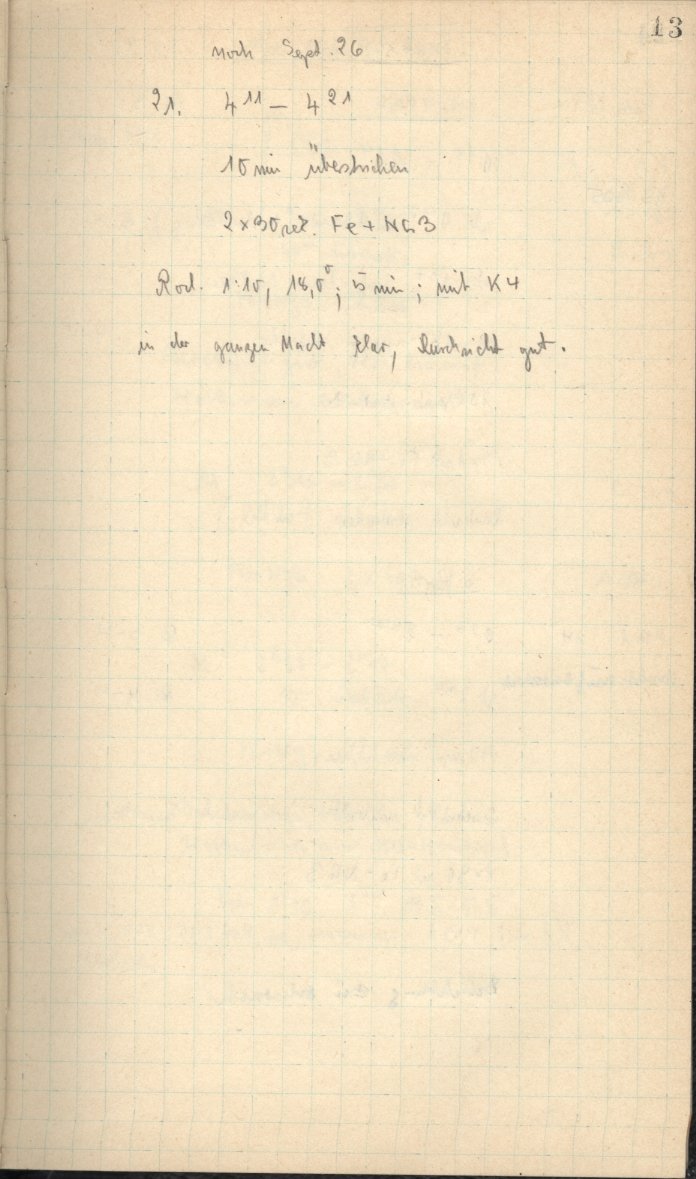 13
noch Sept. 26
21. 4 11 — 4 21
10 min überstrichen
2 x 30 sek. Fe + NG3
Rod. 1:10, 18,0°; 5 min; mit K4
in der ganzen Nacht klar, Durchsicht gut.